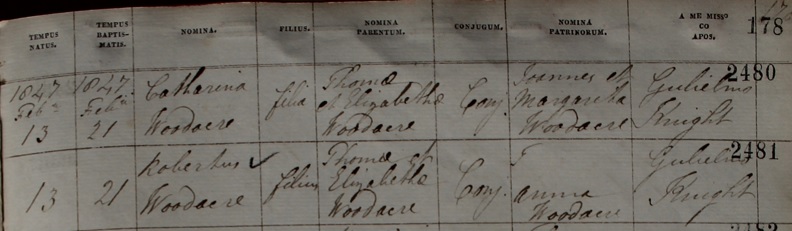 TEMPUS NATUS. TEMPUS BAPTIS-MATIS. NOMINA. FILIUS. NOMINA PARENTUM. CONJUGUM. NOMINA PATRINORUM. A ME MISSº CO APOS. 178
2480
1847 1847 Catharina filia Thomæ Conj. Joannes et Gulielmo
Feb.a Feb.a et Elizabethæ Margareta Knight
13 21 Woodacre Woodacre Woodacre
2481
Robertus ✓ Thomæ et Gulielmo
13 21 filius Elizabethæ Conj. Anna Knight
Woodacre Woodacre Woodacre